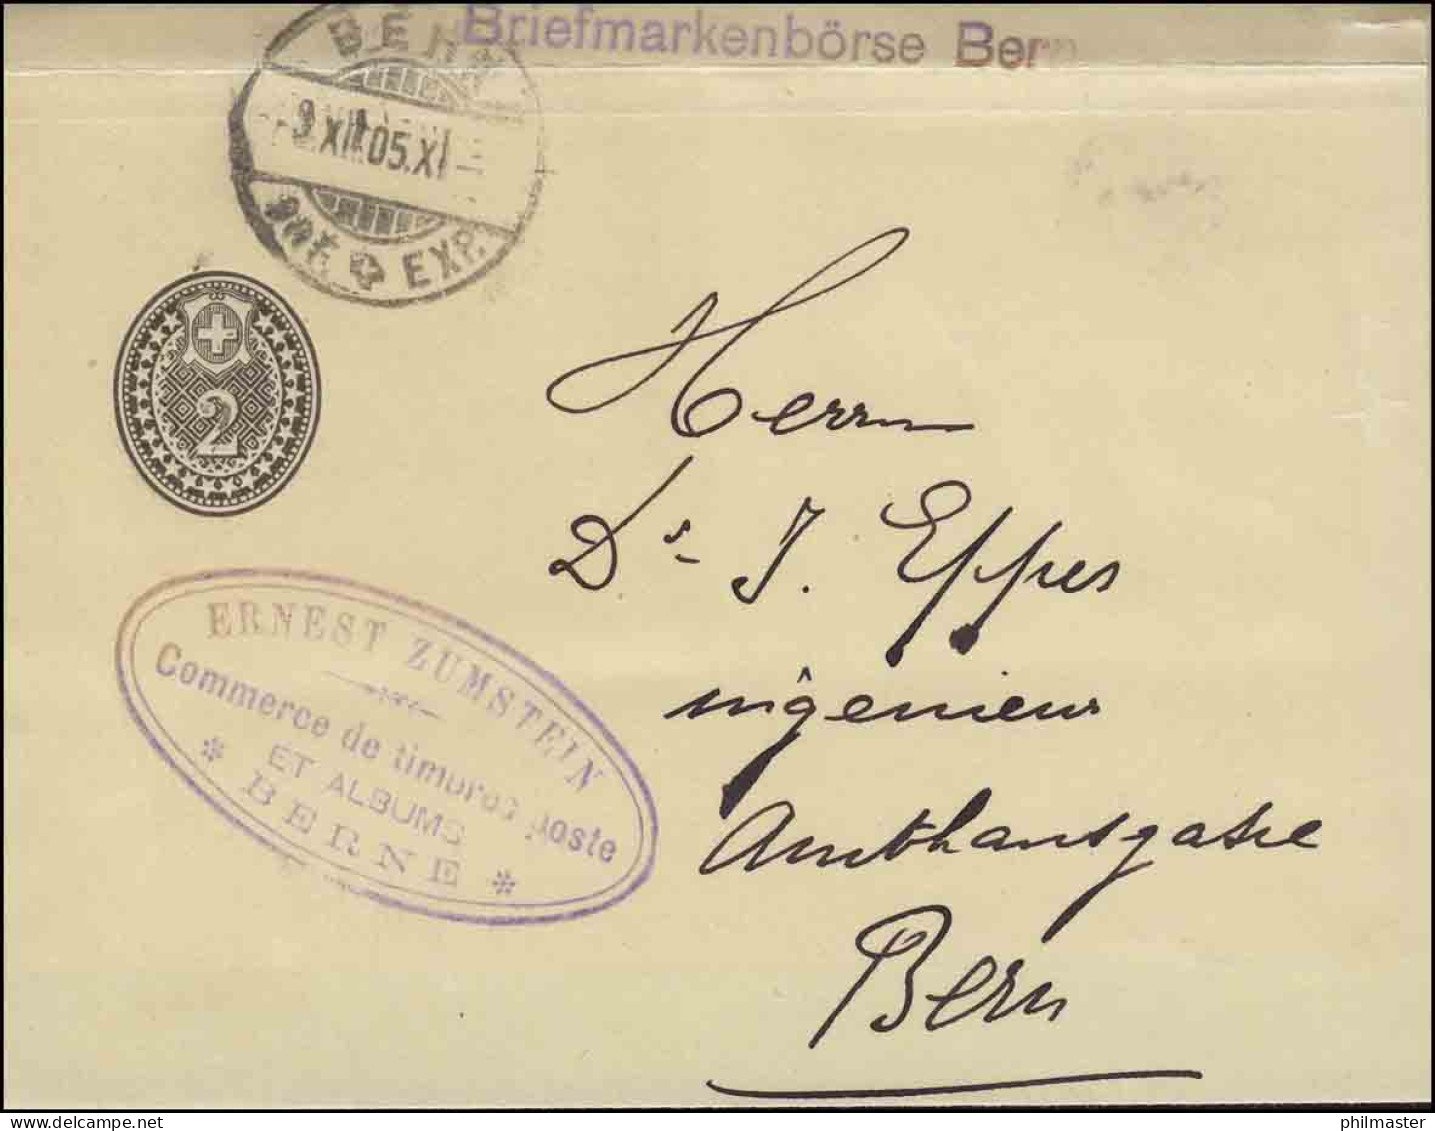 Briefmarkenbörse Bern
BERN
9.XII.05.XI
EXP.
2
Herrn
Dr J. Eppes
ingénieur
Amthausgasse
Bern
ERNEST ZUMSTEIN
Commerce de timbres poste
ET ALBUMS
* BERNE *
philmaster